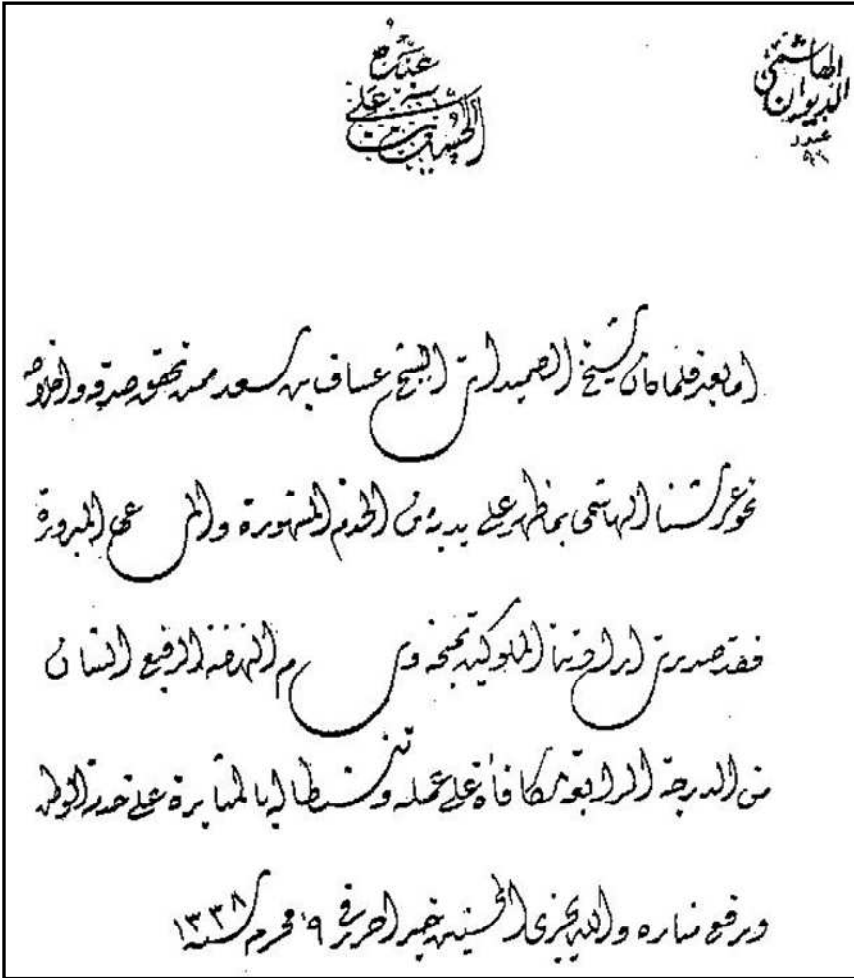 الديوان الهاشمي
عدد
٩٦
عبده
الحسين بن علي
اما بعد فلما كان شيخ الصميدات الشيخ عساف بن سعد ممن تحقق صدقه واخلاصه
نحو عرشنا الهاشمي بما ظهر على يديه من الخدم المشهورة والمساعي المبرورة
فقد صدرت ارادتنا الملوكية بمنحه وسام النهضة الرفيع الشان
من الدرجة الرابعة مكافأة على عمله وتنشيطا له بالمثابرة على خدمة الوطن
ورفع مناره والله يجزي المحسنين خير اجر في ٩ محرم سنة ١٣٣٨